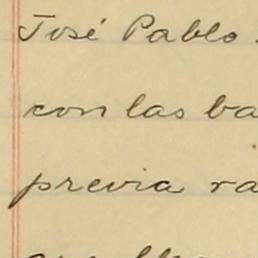 José Pablo.
con las ba
previa ra